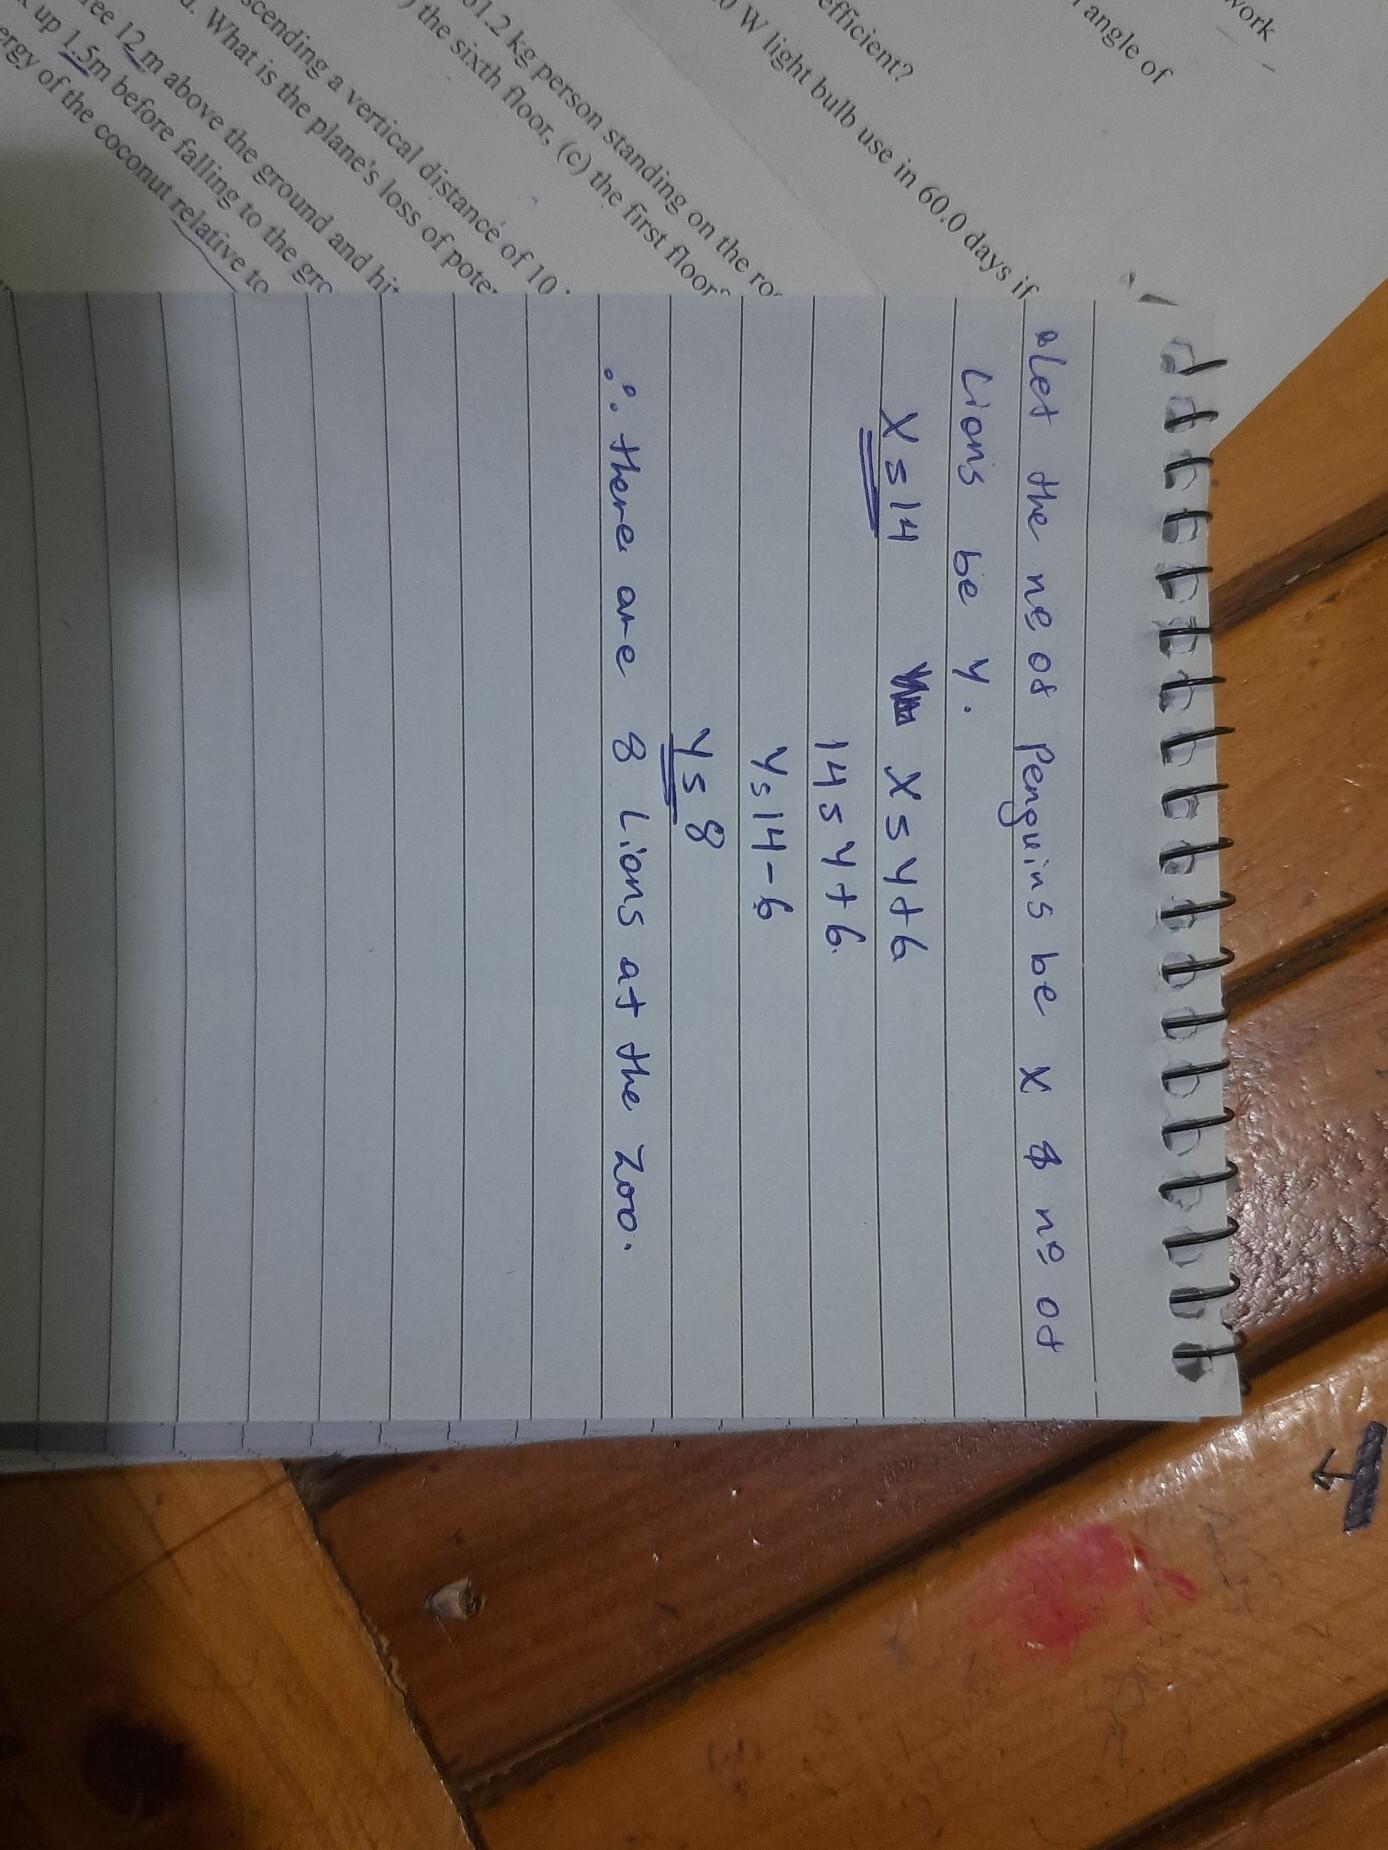 work
angle of
efficient?
W light bulb use in 60.0 days if
61.2 kg person standing on the
the sixth floor, (c) the first floor
scending a vertical distance of 10
. What is the plane's loss of
12 m above the ground and
up 1.5m before falling to the
of the coconut relative to
Let the no of Penguins be x & no of
Lions be y.
x = 14 x = y + 6
14 = y + 6
y = 14 - 6
y = 8
∴ there are 8 Lions at the Zoo.